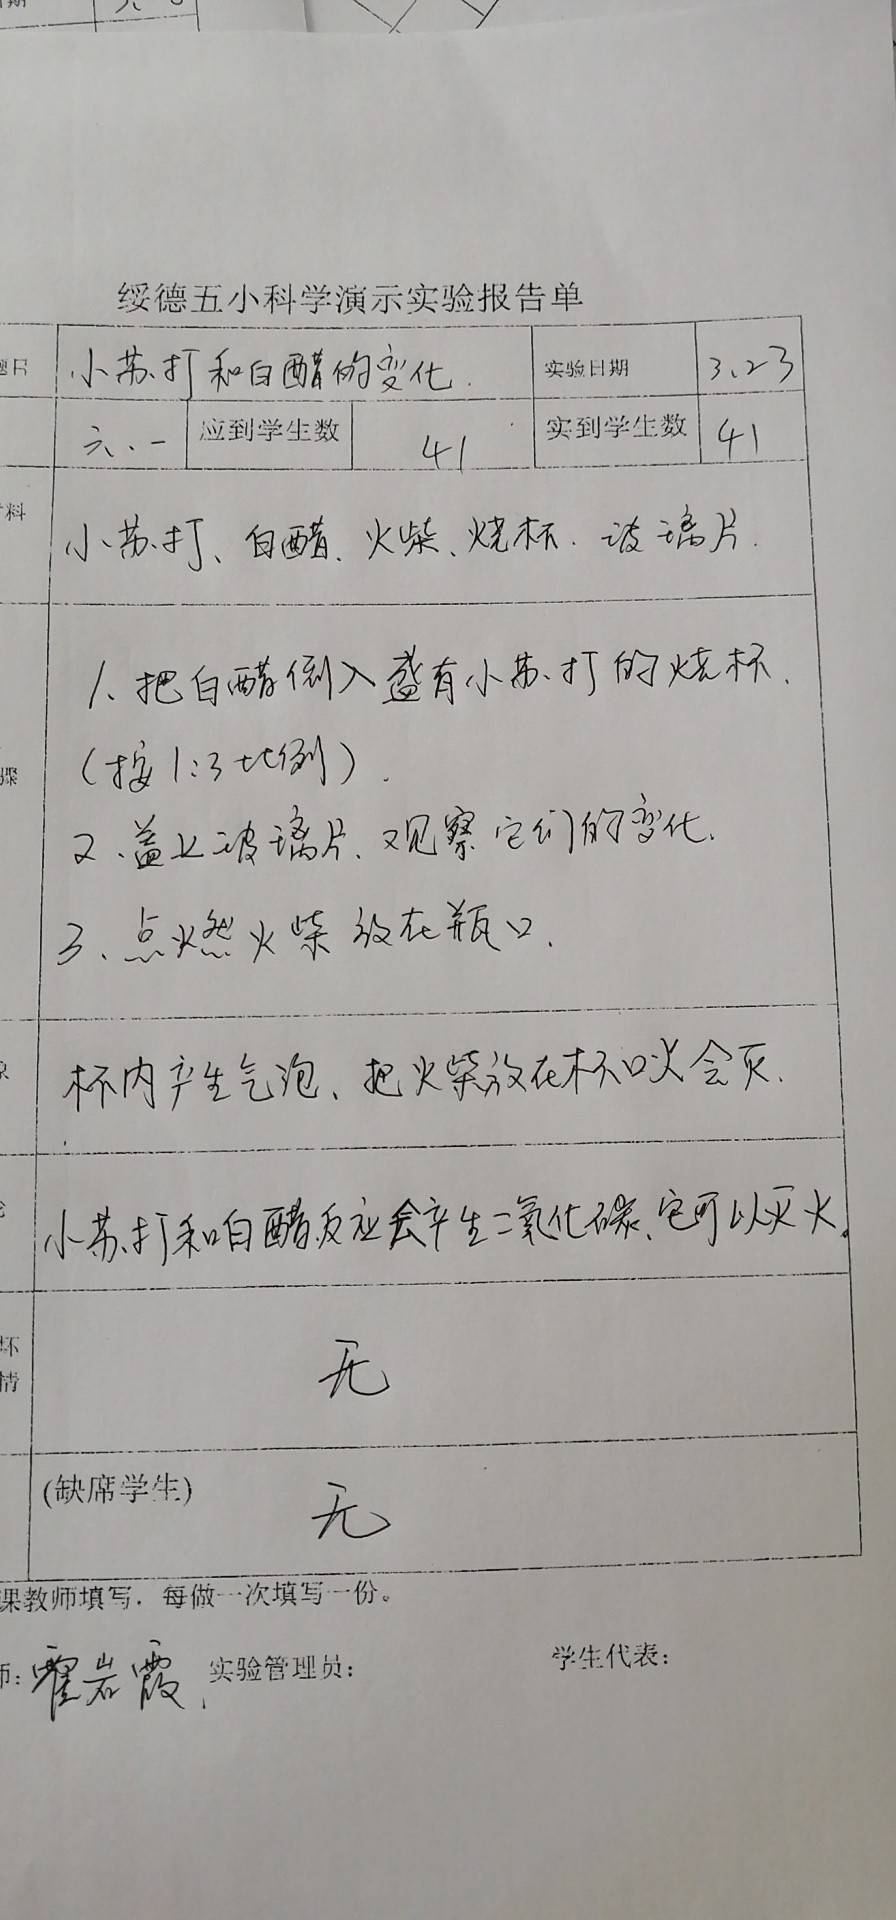 绥德五小科学演示实验报告单
题目 小苏打和白醋的变化. 实验日期 3.23
六.一 应到学生数 41 实到学生数 41
材料 小苏打、白醋、火柴、烧杯. 玻璃片.
1、把白醋倒入盛有小苏打的烧杯.
骤 (按1:3比例).
2、盖上玻璃片、观察它们的变化.
3、点燃火柴放在瓶口.
象 杯内产生气泡、把火柴放在杯口火会灭.
论 小苏打和白醋反应会产生二氧化碳、它可以灭火.
坏
情 无
(缺席学生) 无
课教师填写. 每做一次填写一份。
师: 霍岩霞 实验管理员: 学生代表: